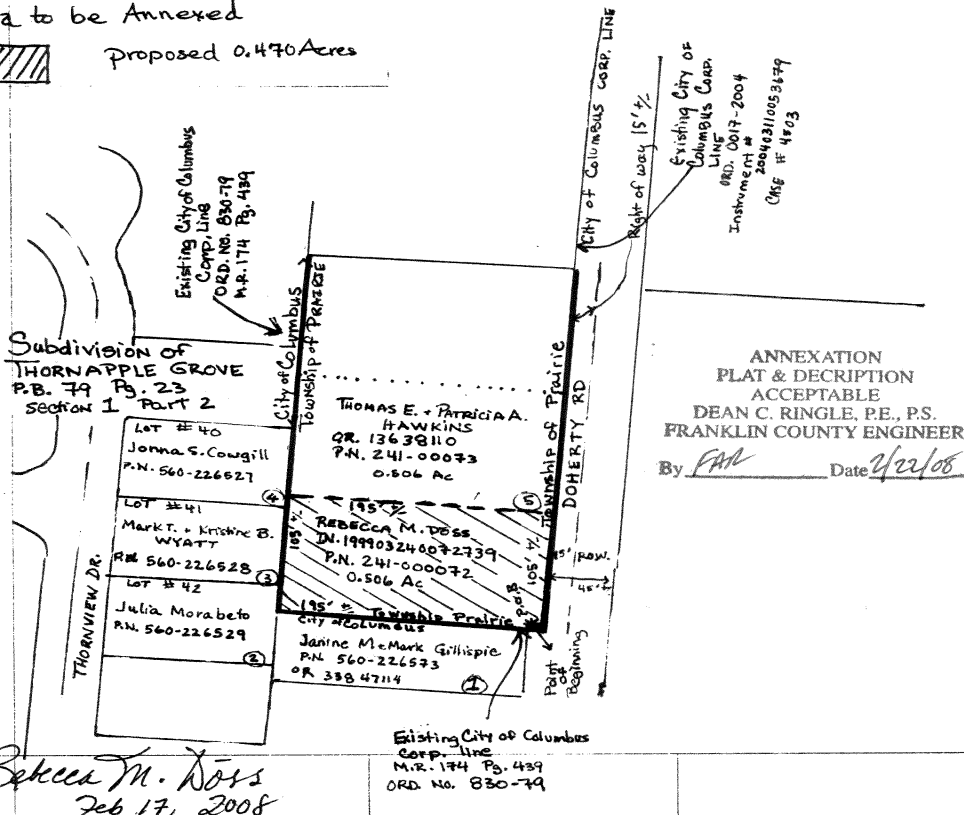 a to be Annexed
proposed 0.470 Acres
Existing City of Columbus
Corp. Line
ORD. NO. 830-79
M.R. 174 Pg. 439
City of Columbus CORP. LINE
Right of way 15' +/-
Existing City of
Columbus Corp.
LINE
ORD. 0017-2004
Instrument #
200403110053679
CASE # 4803
Subdivision of
THORNAPPLE GROVE
P.B. 79 Pg. 23
Section 1 Part 2
City of Columbus
Township of PRAIRIE
THOMAS E. + PATRICIA A.
HAWKINS
OR. 13638110
P.N. 241-00073
0.506 Ac
Township of Prairie
DOHERTY RD
ANNEXATION
PLAT & DECRIPTION
ACCEPTABLE
DEAN C. RINGLE, P.E., P.S.
FRANKLIN COUNTY ENGINEER
By FAR Date 2/22/08
LOT #40
Jonna S. Cowgill
P.N. 560-226527
4
LOT #41
Mark T. + Kristine B.
WYATT
560-226528
3
LOT #42
Julia Morabeto
P.N. 560-226529
2
THORNVIEW DR.
195' +/-
5
REBECCA M. DOSS
IN. 199903240072739
P.N. 241-000072
0.506 Ac
105' +/-
105' +/-
P.O.B
15' ROW.
45' ±
195' ± Township Prairie
City of Columbus
Janine M & Mark Gillispie
P.N. 560-226573
OR 33847114
1
Point
of
Beginning
Existing City of Columbus
Corp. line
M.R. 174 Pg. 439
ORD. NO. 830-79
Rebecca M. Doss
Feb 17, 2008